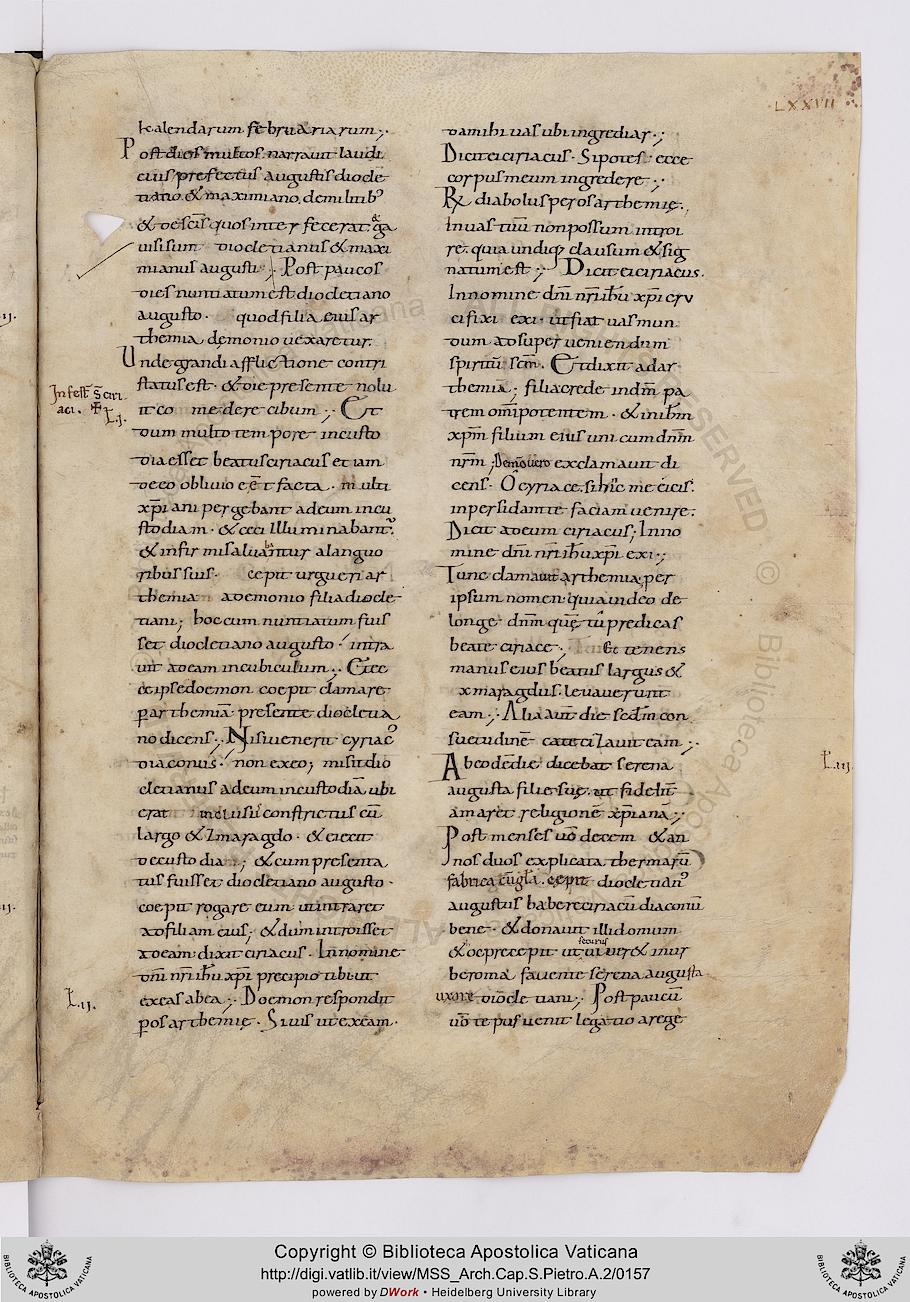 LXXVII
kalendarum februariarum ;
Post dies multos. narravit laudi
eius prefectus augustis diocle
tiano & maximiano. de militib'
& de scis quos inter fecerat. & ga
visi sunt diocletianus & maxi
mianus augusti ; Post paucos
dies nuntiatum est diocletiano
augusto . quod filia eius ar
themia demonio vexaretur.
Unde grandi afflictione contri
status est. & die presente nolu
it co medere cibum ; Et
dum multo tempore in custo
dia esset beatus ciriacus et iam
multi
xpiani pergebant ad eum in cu
stodiam. & ceci illuminabant.
& infir mi salvabantur a languo
ribus suis. cepit urgueri ar
themia a demonio filia diocle
tiani; hoc cum nuntiatum fuis
set diocletiano augusto. intra
vit ad eam in cubiculum ; Et ec
ce ipse doemon coepit clamare
par themiā presente diocletia
no dicens ; Nisi venerit cyriac'
diaconus. non exeo; misit dio
cletianus ad eum in custodiā ubi
erat constrictus cū
largo & zmaragdo. & eiecit
de custo dia ; & cum presenta
tus fuisset diocletiano augusto.
coepit rogare eum ut intraret
ad filiam eius; & dum introisset
ad eam. dixit ciriacus. In nomine
dni nri ihu xpi precipio tibi ut
exeas ab ea ; Doemon respondit
p os arthemię. Si vis ut exeam.
In fest s ciri
aci. L. i.
L. ii.
da mihi vas ubi ingrediar ;
Dicit ei ciriacus. Si potes. ecce
corpus meum ingredere ;
R diabolus per os arthemię.
In vas tuū non possum introi
re. quia undiq; clausum & sig
natum est ; Dicit ei ciriacus.
In nomine dni nri ihu xpi cru
cifixi exi. ut fiat vas mun
dum ad super veniendum
spiritū scm. Et dixit ad ar
themia ; filia crede in dm pa
trem omipotentem. & in ihm
xpm filium eius unicum dnm
nrm ; Demō vero exclamavit di
cens. O cyriace. si hic me eicis.
in persida te faciam venire.
Dicit ad eum ciriacus; In no
mine dni nri ihu xpi exi ;
Tunc clamavit arthemia. per
ipsum nomen. quia video de
longe dnm quę tu predicas
beate ciriace. Et tenens
manus eius beatus largus &
xmaragdus. levaverunt
eam ; Alia aut die scdm con
suetudinē catecizavit eam ;
Ab eo de die dicebat serena
augusta filię suę. ut fideliт
amaret religionē xpianā ;
Post menses vō decem & an
nos duos explicata thermarū
fabrica cepit diocletian'
augustus habere ciriacū diaconū
bene. & donavit illi domum
& de precepit ut securus viver& in ur
be roma favente serena augusta
uxore diocle tiani ; Post paucū
vō tēpus venit legatio a rege
L. iii.
Copyright © Biblioteca Apostolica Vaticana
http://digi.vatlib.it/view/MSS_Arch.Cap.S.Pietro.A.2/0157
powered by DWork • Heidelberg University Library
BIBLIOTECA APOSTOLICA VATICANA
BIBLIOTECA APOSTOLICA VATICANA